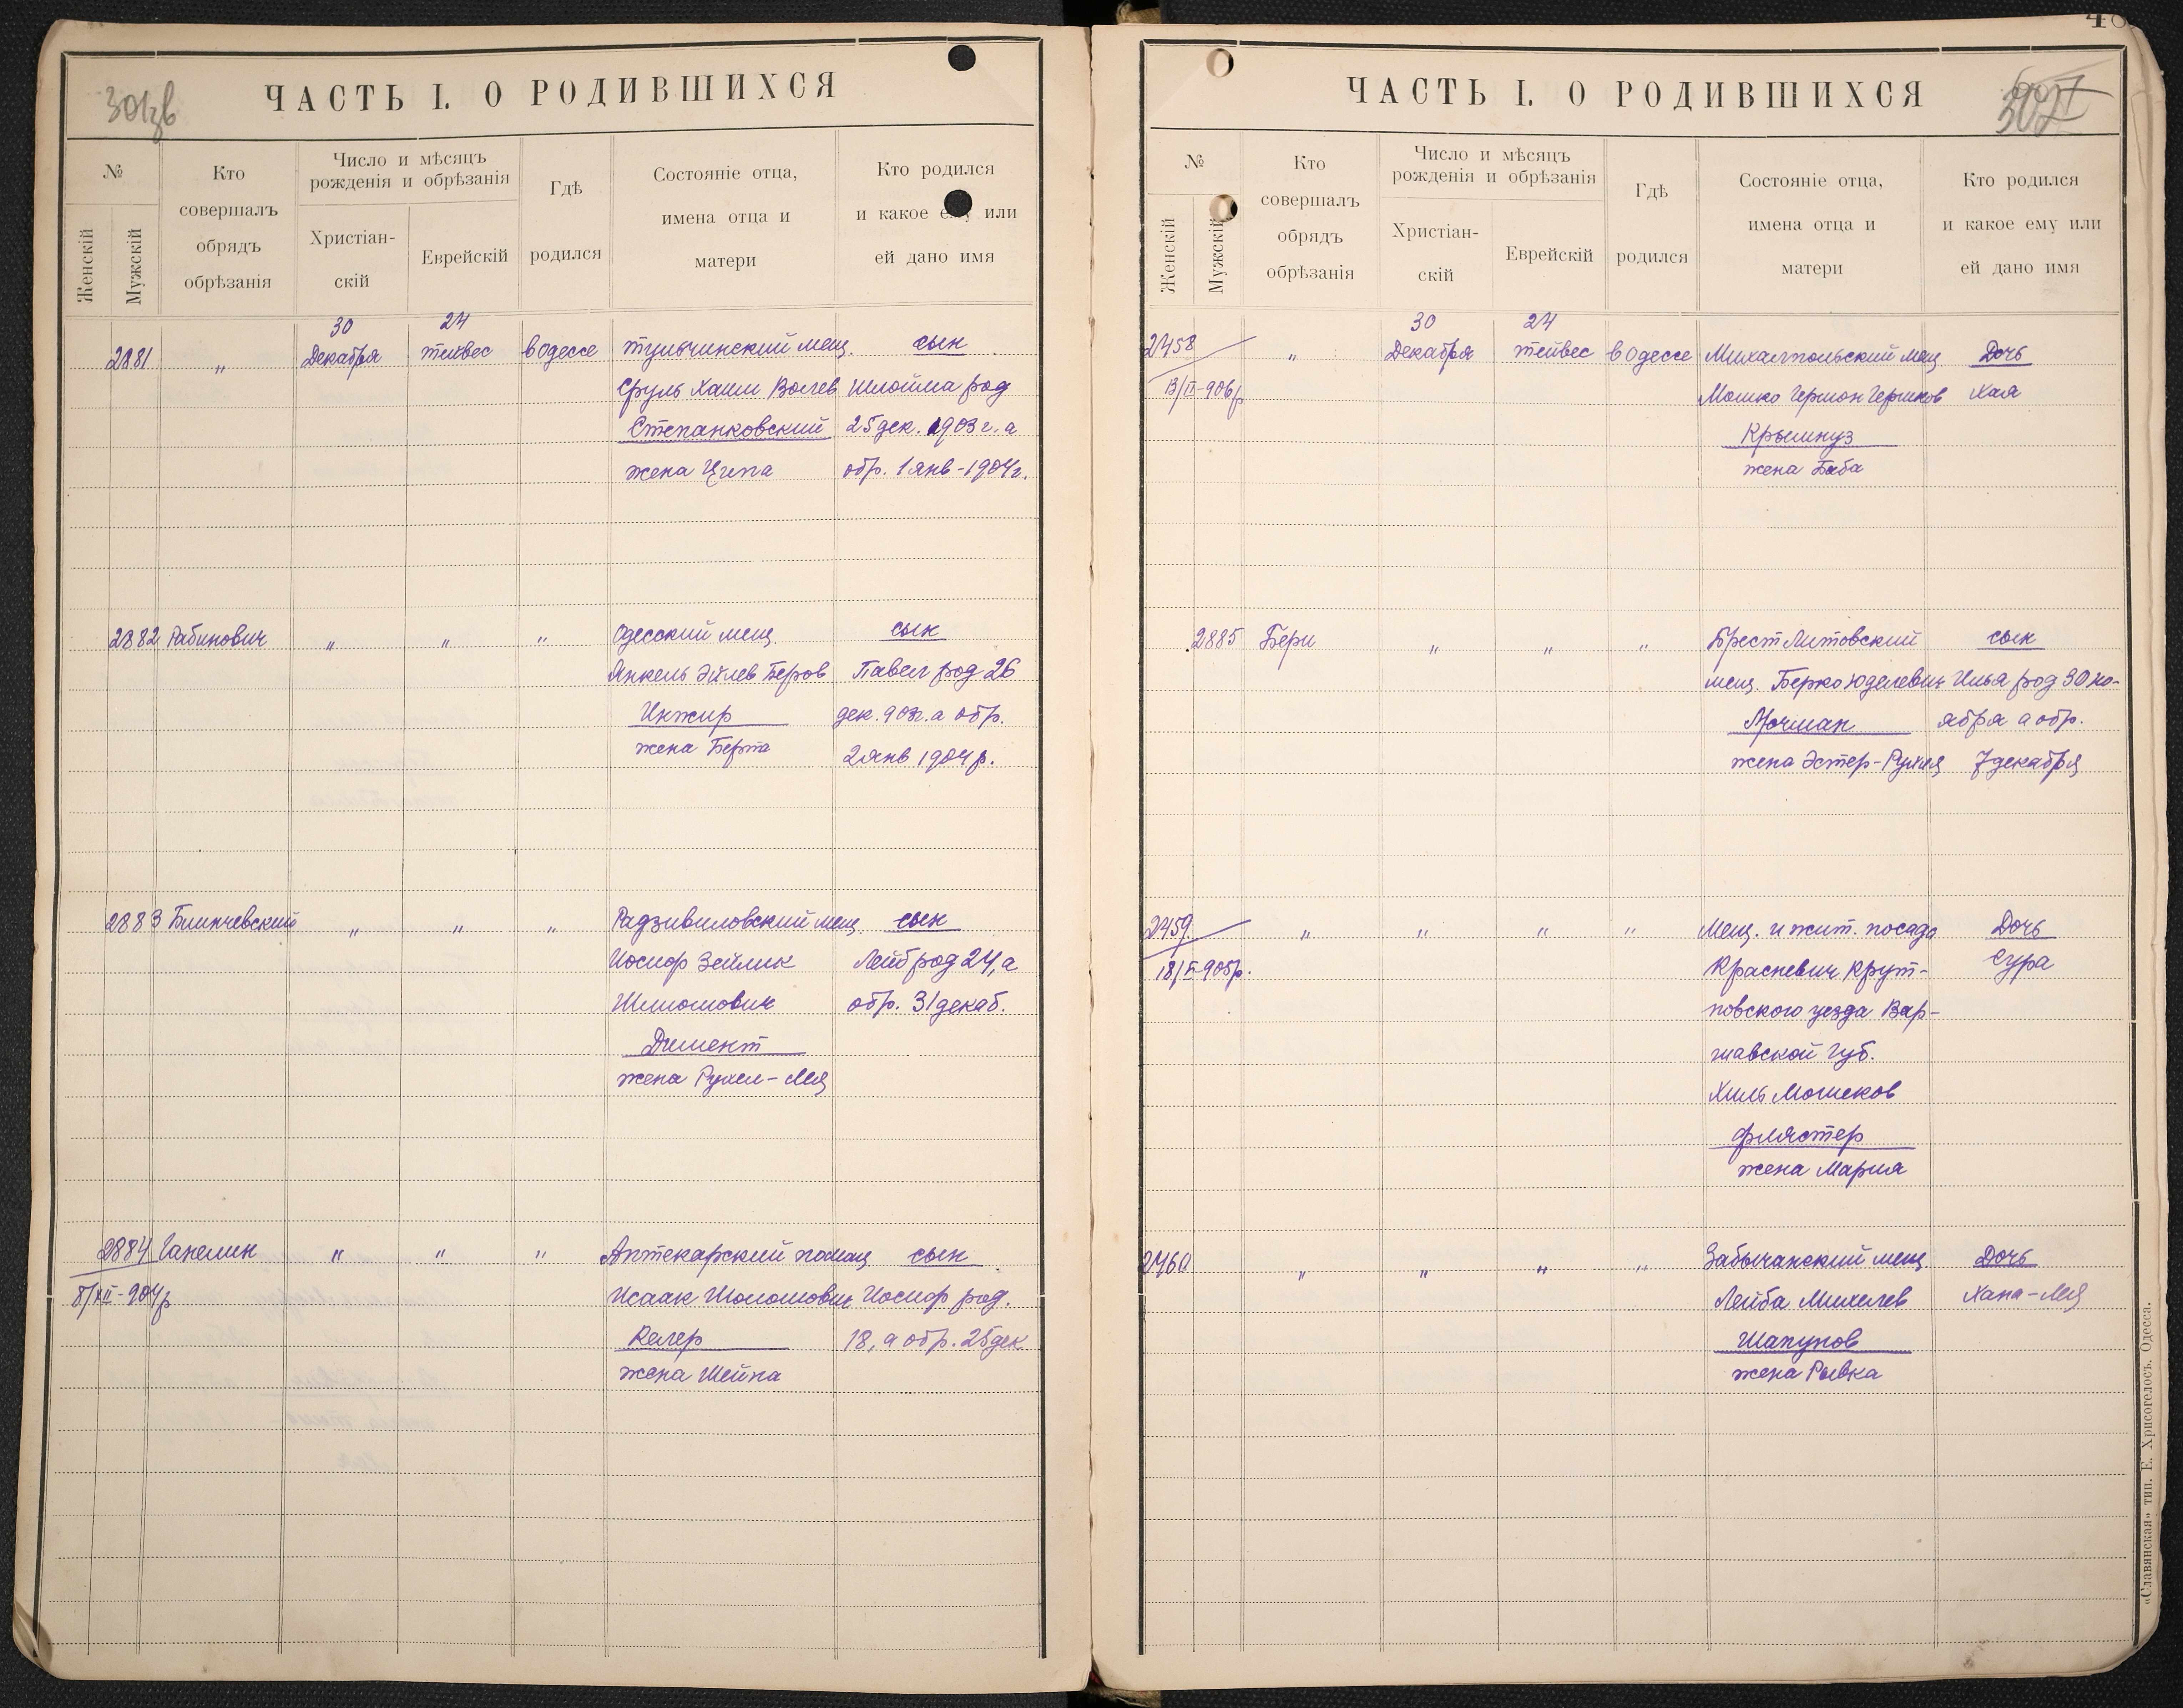 301зв
ЧАСТЬ I. О РОДИВШИХСЯ
№
Женскій
Мужскій
Кто совершалъ обрядъ обрѣзанія
Число и мѣсяцъ рожденія и обрѣзанія
Христіан-
скій
Еврейскій
Гдѣ родился
Состояніе отца, имена отца и матери
Кто родился и какое ему или ей дано имя
30 24
2881 " Декабря тейвес в Одессе Тульчинский мещ. сын
Сруль Хаим Волев Шлойма род
Степанковский 25 дек. 1903 г. а
жена Ципа обр. 1 янв - 1904 г.
2882 Рабинович " " " Одесский мещ. сын
Янкель Эйлев Беров Павел род 26
Инжир дек. 903 г. а обр.
жена Берта 2 янв 1904 р.
2883 " " " Радзивиловский мещ. сын
Иосиф Зейлик Лейб род 24, а
Шлиомович обр. 31 декаб.
Димент
жена Рухел-Лея
2884 Ганелин " " " Аптекарский помощ сын
8/XII-904 р Исаак Шоломович Иосиф род.
Келер 18, а обр. 25 дек
жена Шейна
ЧАСТЬ I. О РОДИВШИХСЯ
302
№
Женскій
Мужскій
Кто совершалъ обрядъ обрѣзанія
Число и мѣсяцъ рожденія и обрѣзанія
Христіан-
скій
Еврейскій
Гдѣ родился
Состояніе отца, имена отца и матери
Кто родился и какое ему или ей дано имя
30 24
2458 " Декабря тейвес в Одессе Михалпольский мещ Дочь
13/II-906 р Мошко Гершон Гершков Хая
Крымнуз
жена Баба
2885 Бери " " " Брест Литовский сын
мещ. Берко Юделевич Илья род 30 но-
Мочман ября а обр.
жена Эстер-Рухля 7 декабря
2459 " " " " Мещ. и жит. посада Дочь
905 р. Красневич Крут- Сура
новского уезда Вар-
шавской губ.
Хиль Мошеков
Флястер
жена Мария
2460 " " " " Забычанский мещ Дочь
Лейба Михелев Хана-Лея
Шапунов
жена Рывка
«Славянская» тип. Е. Хрисогелосъ. Одесса.